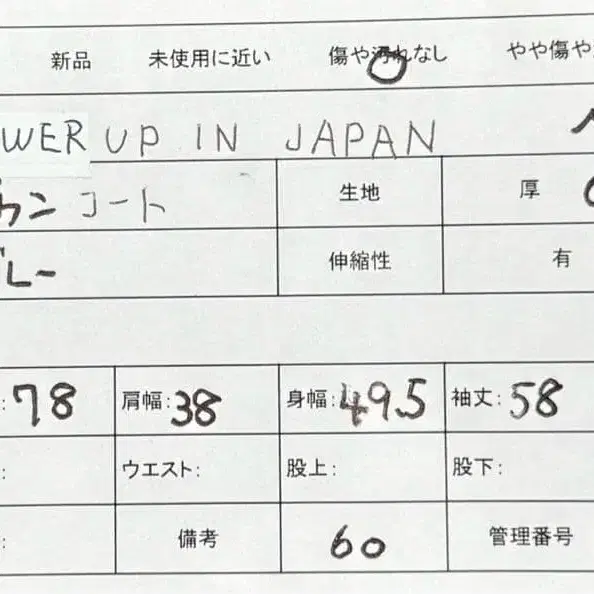 新品 未使用に近い 傷や汚れなし やや傷や
WER UP IN JAPAN
ウン コート 生地 厚
レー 伸縮性 有
:78 肩幅:38 身幅:49.5 袖丈:58
: ウエスト: 股上: 股下:
: 備考 60 管理番号